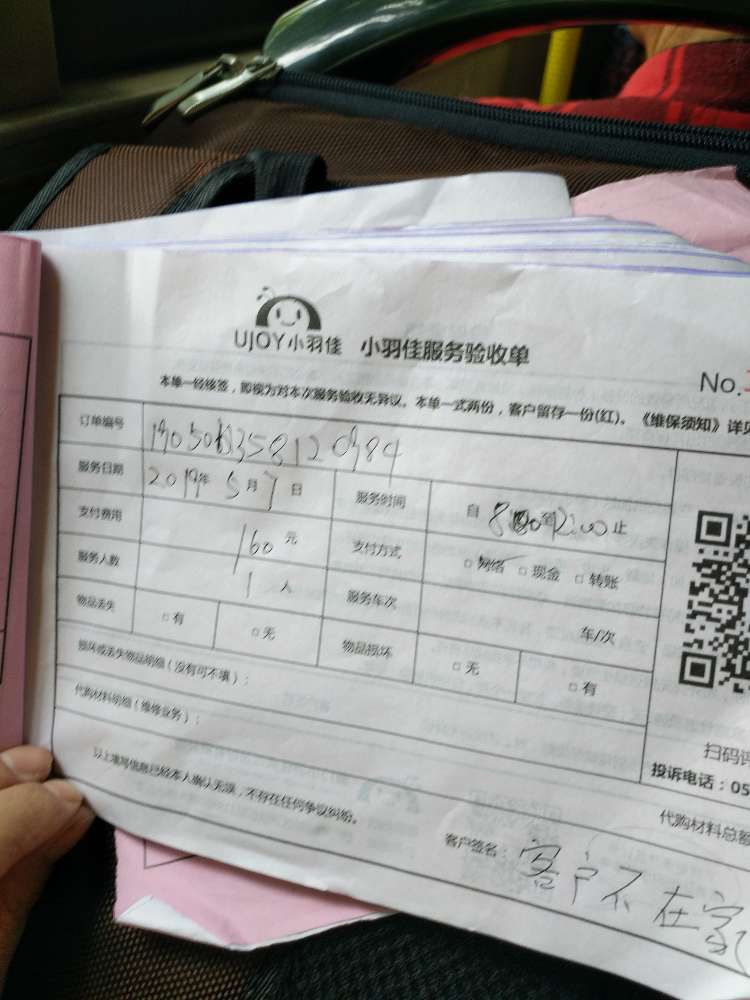 UJOY小羽佳 小羽佳服务验收单
No.
本单一经核签，即视为对本次服务验收无异议。本单一式两份，客户留存一份(红)。《维保须知》详见
订单编号
服务日期 2019年 5月 7日 服务时间 自 至 止
支付费用 160元 支付方式 □网络 □现金 □转账
服务人数 1人 服务车次 车/次
物品丢失 □有 □无 物品损坏 □无 □有
损坏或丢失物品明细（没有可不填）：
代购材料明细（维修业务）：
扫码评
投诉电话：05
代购材料总额
以上填写信息已经本人确认无误，不存在任何争议纠纷。
客户签名：客户不在家